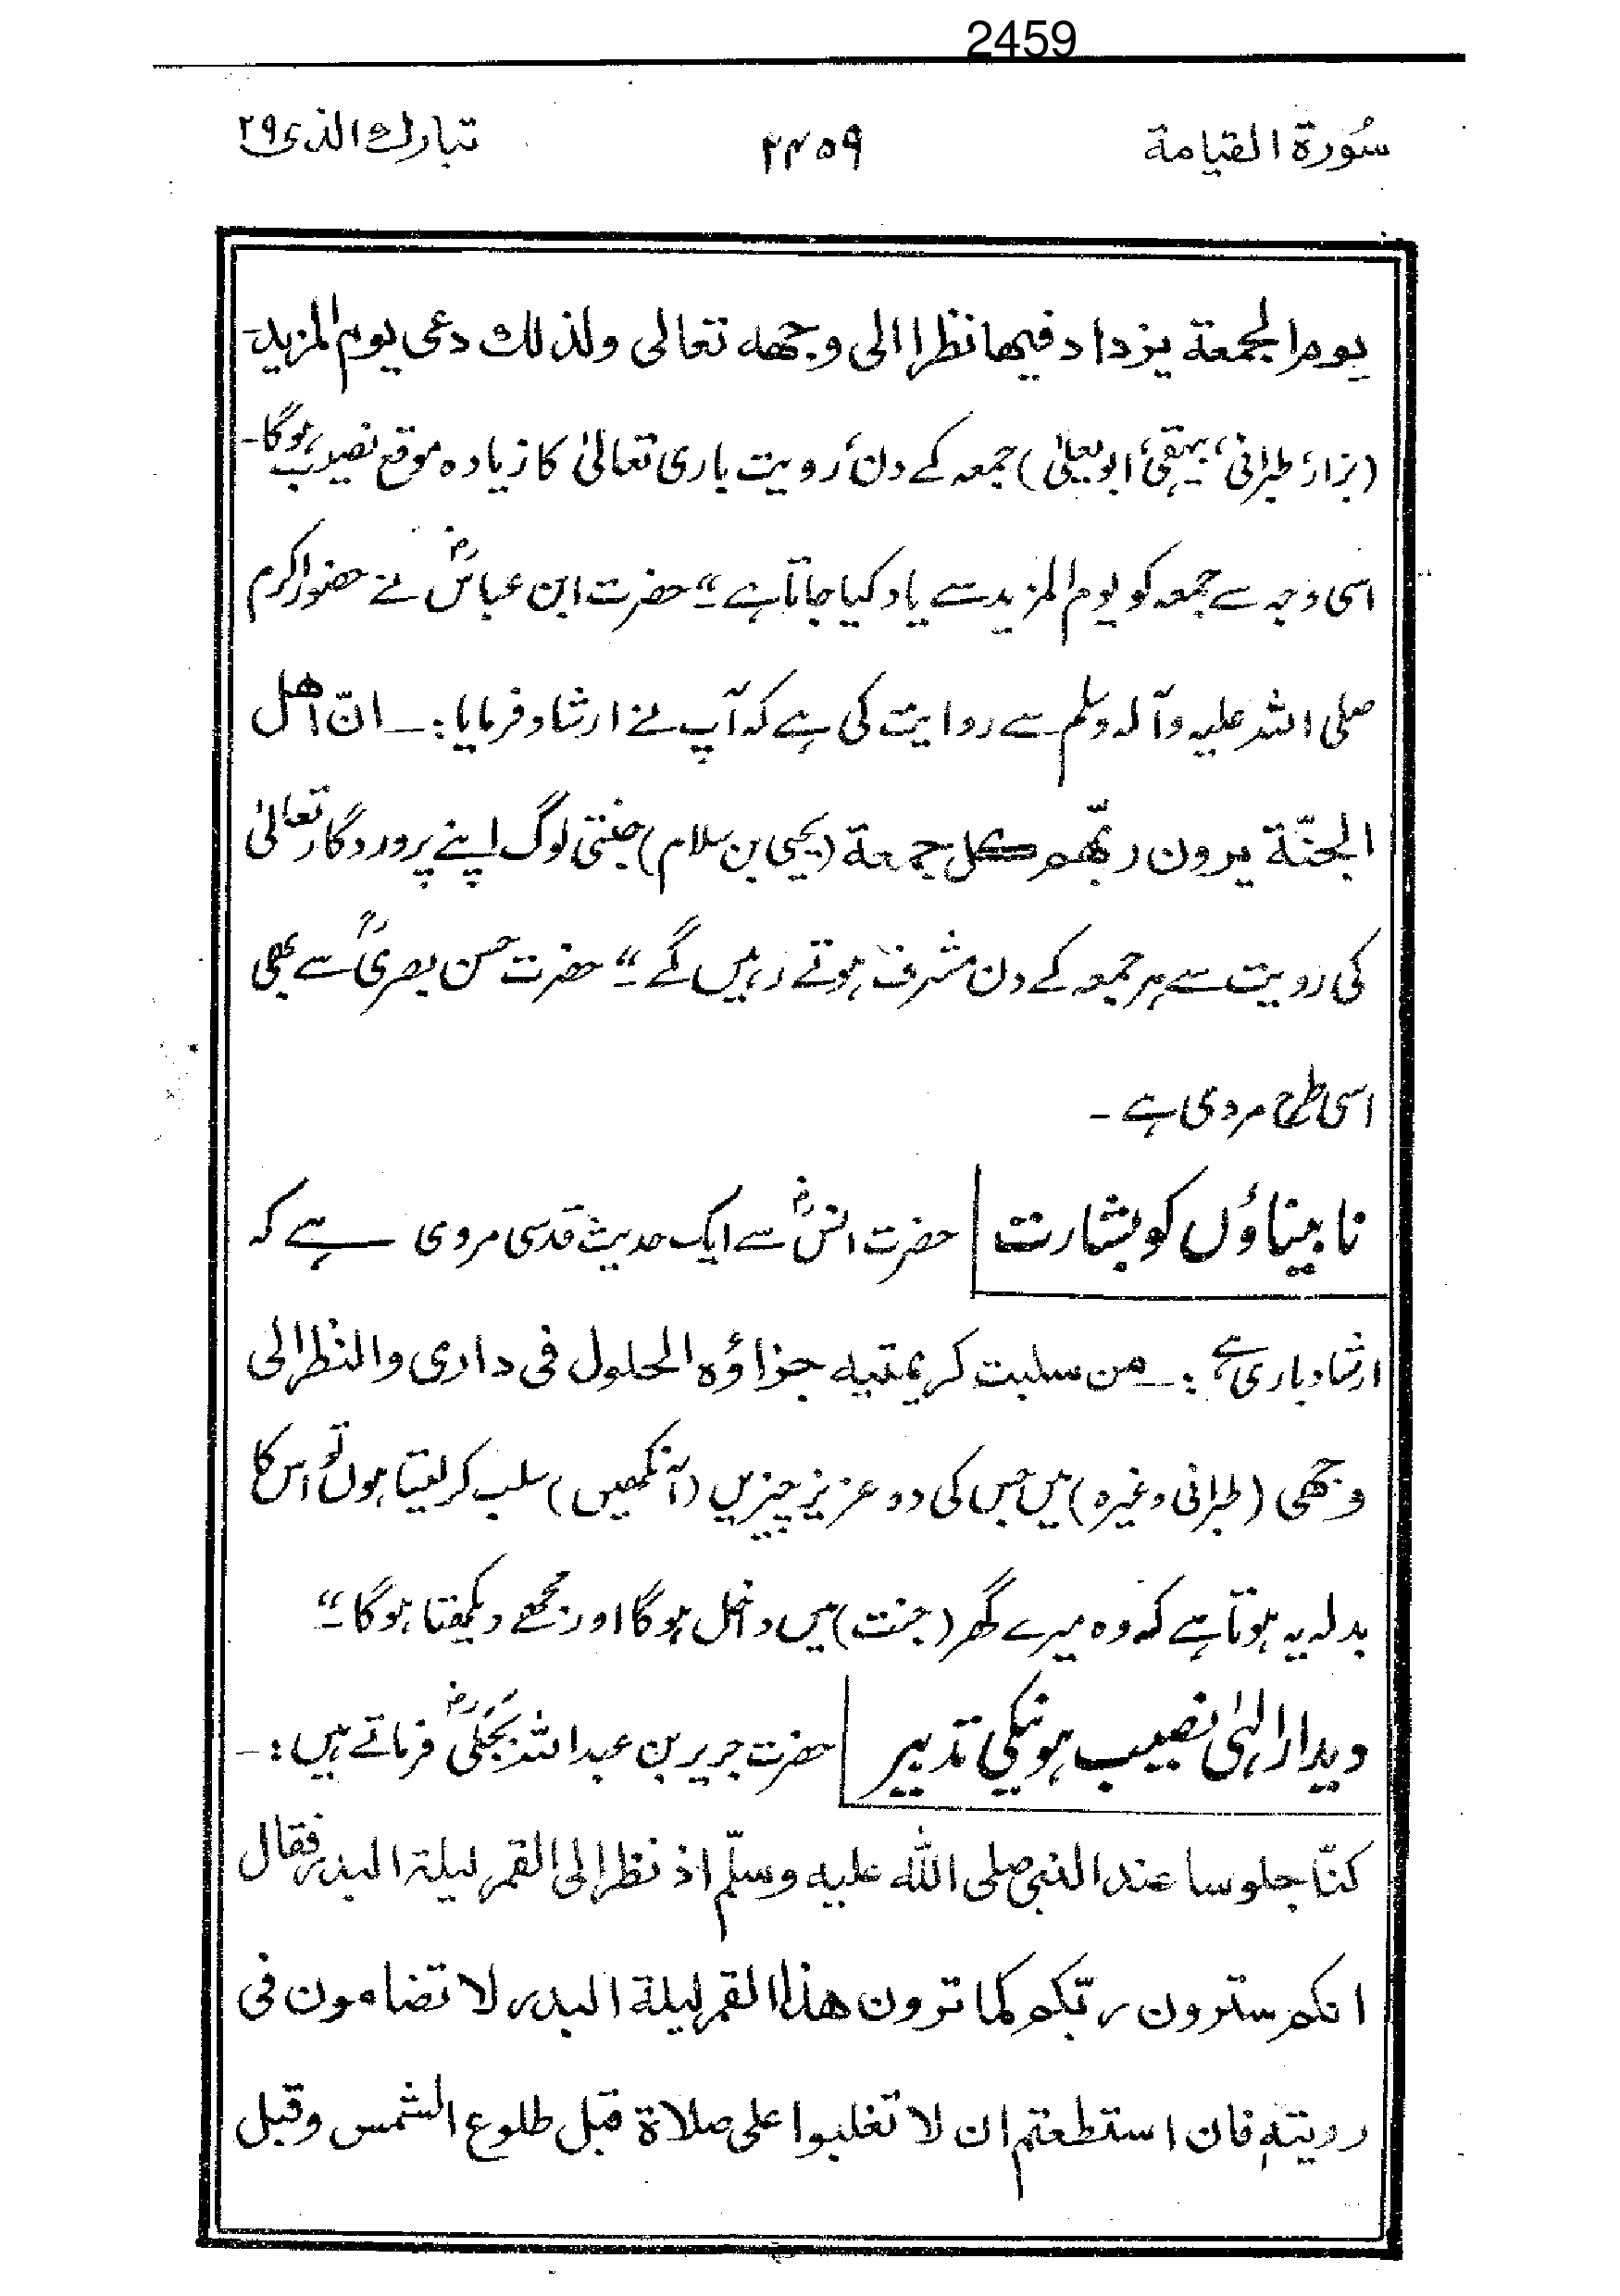 2459
سُورة القيامة ۲۴۵۹ تبارك الذى ۲۹
يوم الجمعة يزداد فيها نظرا الى وجهه تعالى ولذلك دعى يوم المزيد۔
(بزار، طبرانی، بیہقی، ابو یعلیٰ) جمعہ کے دن رویت باری تعالیٰ کا زیادہ موقع نصیب ہوگا۔
اسی وجہ سے جمعہ کو یوم المزید سے یاد کیا جاتا ہے۔“ حضرت ابن عباسؓ نے حضور اکرم
صلی اللہ علیہ وآلہ وسلم سے روایت کی ہے کہ آپ نے ارشاد فرمایا :۔ انّ اهل
الجنّة يرون ربّهم كل جمعة (یحیی بن سلام) جنتی لوگ اپنے پروردگار تعالیٰ
کی رویت سے ہر جمعہ کے دن مشرف ہوتے رہیں گے۔“ حضرت حسن بصریؒ سے بھی
اسی طرح مروی ہے ۔
نابیناؤں کو بشارت حضرت انسؓ سے ایک حدیث قدسی مروی ہے کہ
ارشاد باری ہے :۔ من سلبت كريمتيه جزاؤه الحلول فى دارى والنظر الى
وجهى (طبرانی وغیرہ) میں جس کی دو عزیز چیزیں (آنکھیں) سلب کر لیتا ہوں تو اس کا
بدلہ یہ ہوتا ہے کہ وہ میرے گھر (جنت) میں داخل ہوگا اور مجھے دیکھتا ہوگا۔“
دیدار الہٰی نصیب ہونیکی تدبیر حضرت جریر بن عبداللہ بَجَلیؓ فرماتے ہیں :۔
كنّا جلوسا عند النبى صلى الله عليه وسلّم اذ نظر الى القمر ليلة البدر فقال
انكم سترون ربّكم كما ترون هذا القمر ليلة البدر لا تضامون فى
رويته فان استطعتم ان لا تغلبوا على صلاة قبل طلوع الشمس وقبل